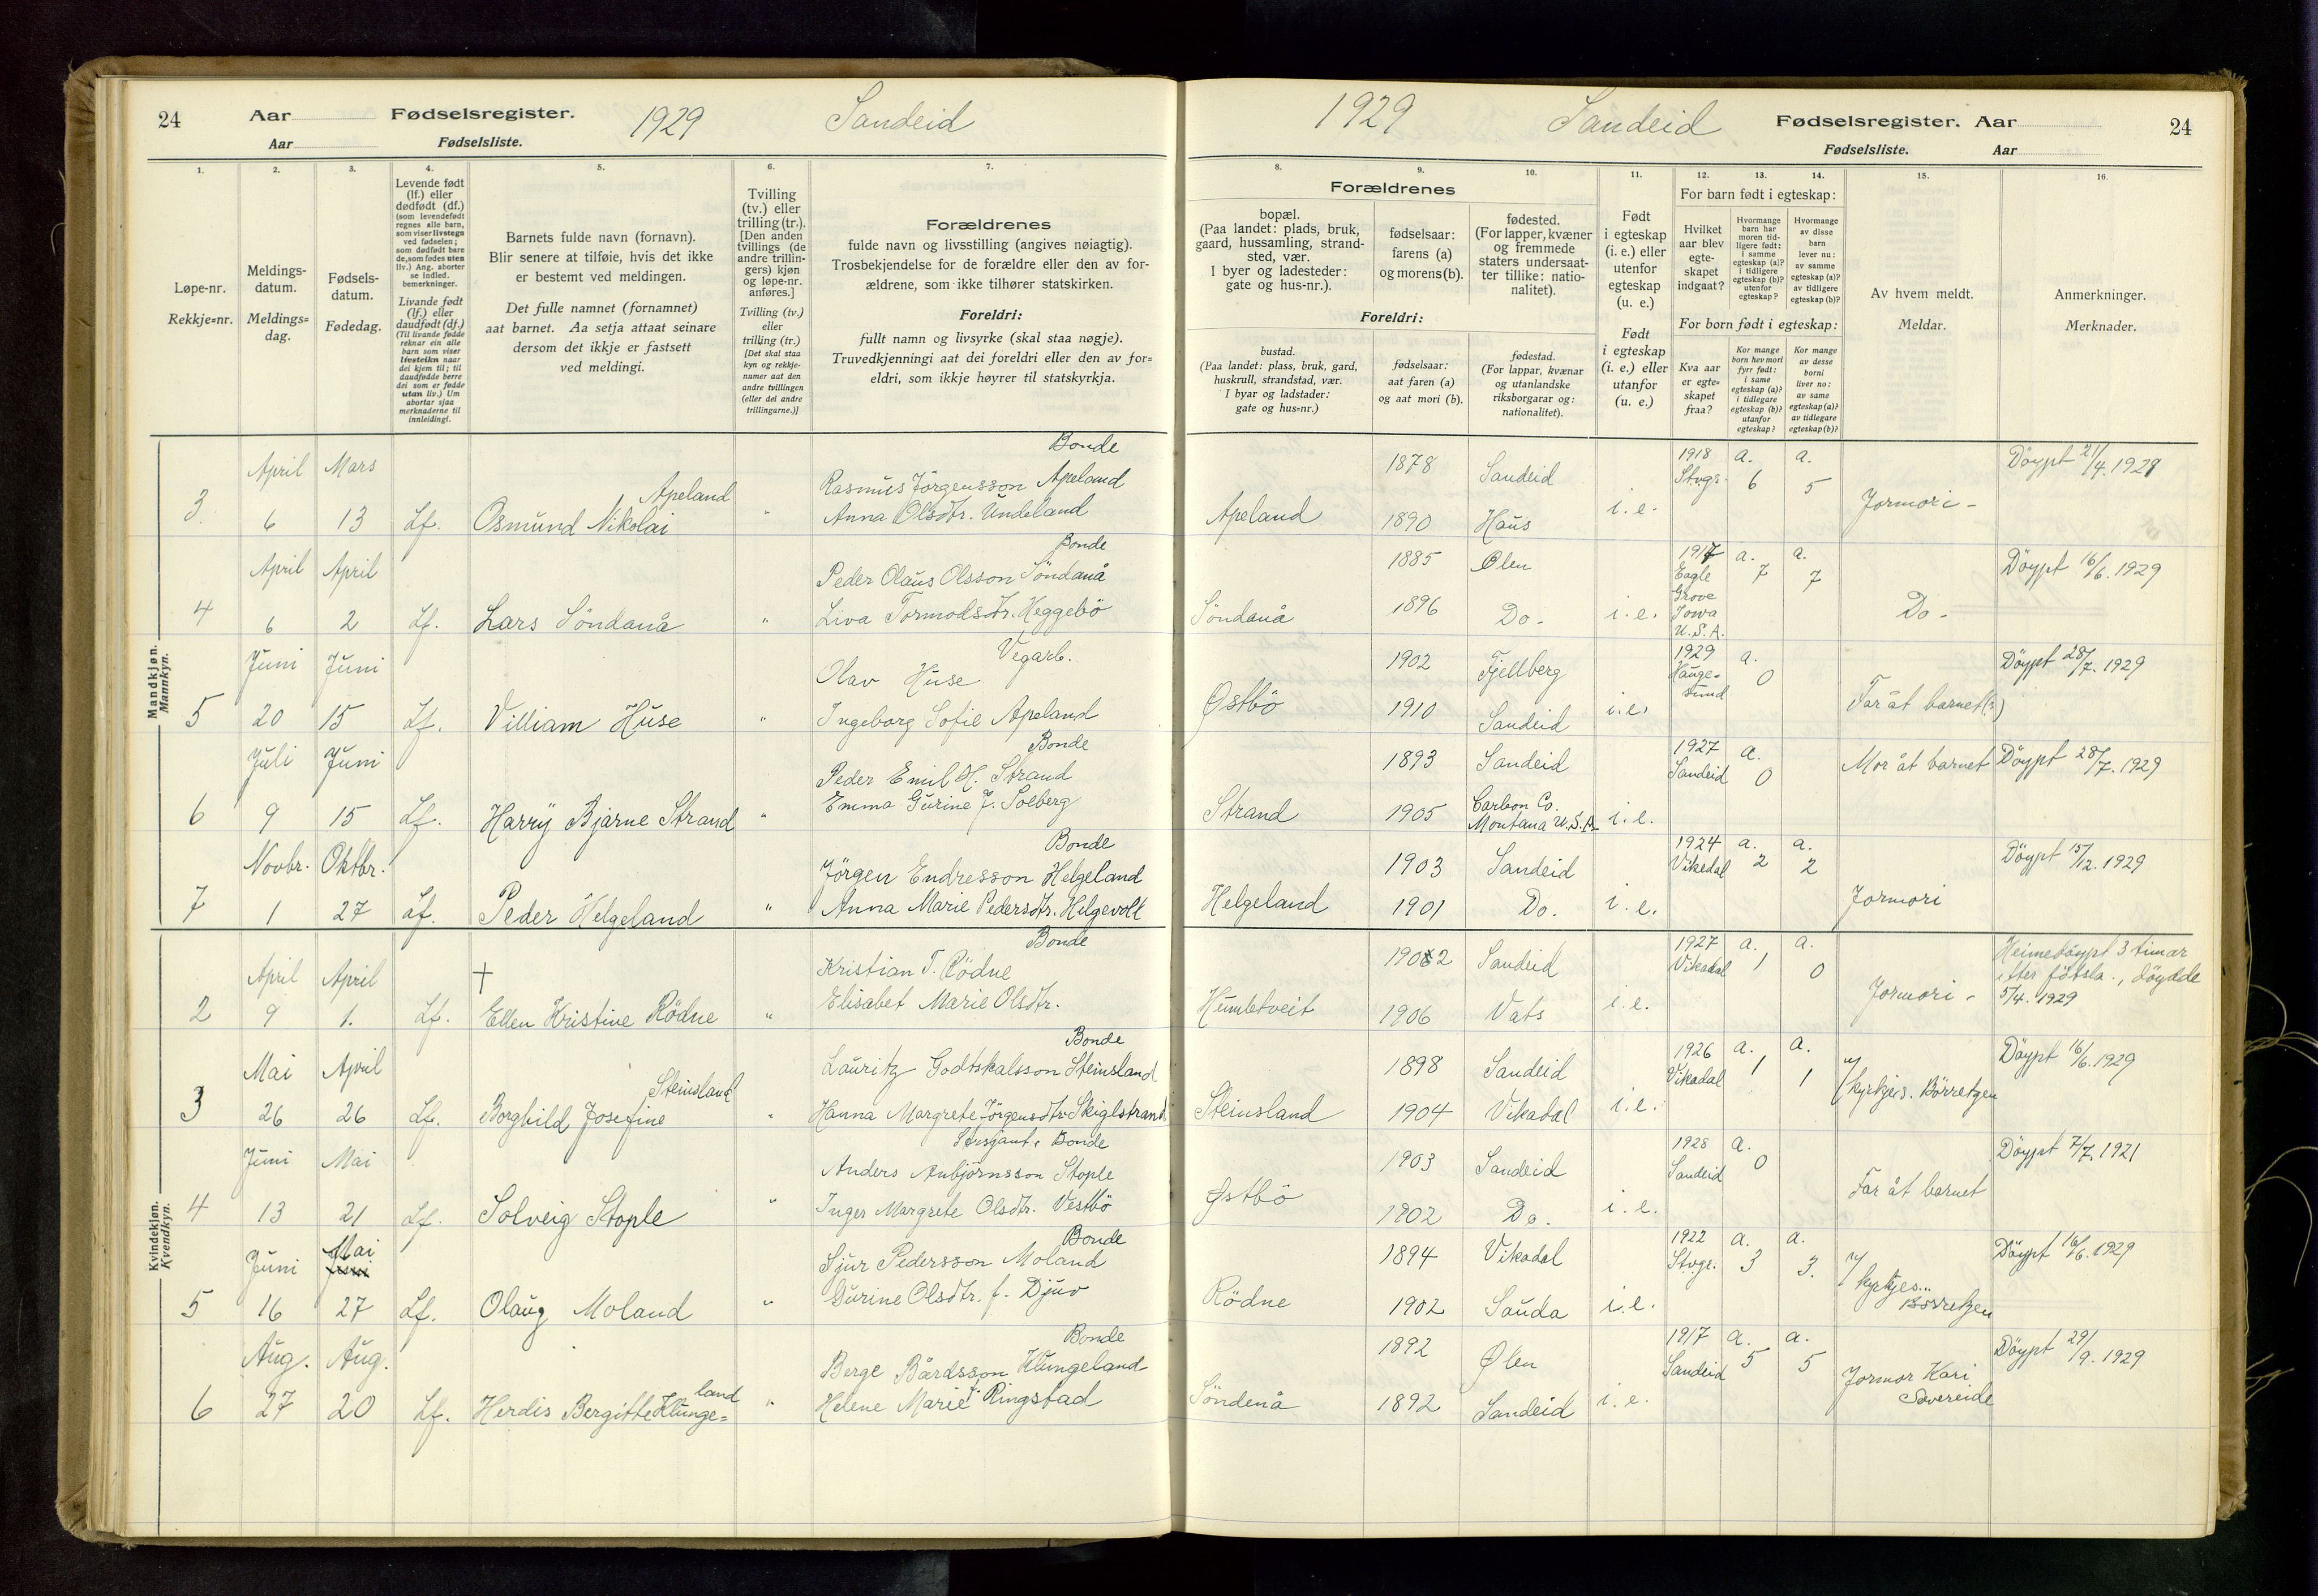 24 Aar Fødselsregister. 1929 Sandeid
Aar Fødselsliste.
1929 Sandeid Fødselsregister. Aar 24
Fødselsliste. Aar
1. 2. 3. 4. 5. 6. 7.
Løpe-nr.
Rekkje=nr.
Meldings-
datum.
Meldings=
dag.
Fødsels-
datum.
Fødedag.
Levende født
(lf.) eller
dødfødt (df.)
(som levendefødt
regnes alle barn,
som viser livstegn
ved fødselen;
som dødfødt bare
de, som fødes uten
liv.) Ang. aborter
se indled.
bemerkninger.
Livande født
(lf.) eller
daudfødt (df.)
(Til livande fødde
reknar ein alle
barn som viser
livsteikn naar
dei kjem til; til
daudfødde berre
dei som er fødde
utan liv.) Um
abortar sjaa
merknaderne til
innleidingi.
Barnets fulde navn (fornavn).
Blir senere at tilføie, hvis det ikke
er bestemt ved meldingen.
Det fulle namnet (fornamnet)
aat barnet. Aa setja attaat seinare
dersom det ikkje er fastsett
ved meldingi.
Tvilling
(tv.) eller
trilling (tr.).
[Den anden
tvillings (de
andre trillin-
gers) kjøn
og løpe-nr.
anføres.]
Tvilling (tv.)
eller
trilling (tr.)
[Det skal staa
kyn og rekkje-
numer aat den
andre tvillingen
(eller dei andre
trillingarne.)]
Forældrenes
fulde navn og livsstilling (angives nøiagtig).
Trosbekjendelse for de forældre eller den av for-
ældrene, som ikke tilhører statskirken.
Foreldri:
fullt namn og livsyrke (skal staa nøgje).
Truvedkjenningi aat dei foreldri eller den av for=
eldri, som ikkje høyrer til statskyrkja.
8. 9. 10. 11. 12. 13. 14. 15. 16.
Forældrenes
bopæl.
(Paa landet: plads, bruk,
gaard, hussamling, strand-
sted, vær.
I byer og ladesteder:
gate og hus-nr.).
fødselsaar:
farens (a)
og morens (b).
fødested.
(For lapper, kvæner
og fremmede
staters undersaat-
ter tillike: natio-
nalitet).
Foreldri:
bustad.
(Paa landet: plass, bruk, gard,
huskrull, strandstad, vær.
I byar og ladstader:
gate og hus=nr.)
fødselsaar:
aat faren (a)
og aat mori (b).
fødestad.
(For lappar, kvænar
og utanlandske
riksborgarar og:
nationalitet).
Født
i egteskap
(i. e.) eller
utenfor
egteskap
(u. e.)
Født
i egteskap
(i. e.) eller
utanfor
(u. e.)
For barn født i egteskap:
Hvilket
aar blev
egte-
skapet
indgaat?
Hvormange
barn har
moren tid-
ligere født:
i samme
egteskap (a)?
i tidligere
egteskap (b)?
utenfor
egteskap?
Hvormange
av disse
barn
lever nu:
av samme
egteskap (a)?
av tidligere
egteskap (b)?
For born født i egteskap:
Kva aar
er egte-
skapet
fraa?
Kor mange
born hev mori
fyrr født:
i same
egteskap (a)?
i tidlegare
egteskap (b)?
utanfor
egteskap?
Kor mange
av desse
borni
liver no:
av same
egteskap (a)?
av tidlegare
egteskap (b)?
Av hvem meldt.
Meldar.
Anmerkninger.
Merknader.
Mandkjøn.
Mannkyn.
Bonde
April Mars Apeland Rasmus Jörgensson Apeland 1878 Sandeid 1918 Stvgr. a. 6 a. 5 Döypt 21/4. 1929
3. 6 13 Lf. Osmund Nikolai " Anna Olsdtr. Undeland Apeland 1890 Haus i. e. Jormori -
Bonde
April April Peder Olaus Olsson Söndanå 1885 Ølen 1917 Eagle Grove Iowa U.S.A. a. 7 a. 7 Döypt 16/6. 1929
4 6 2 Lf. Lars Söndanå " Liva Tormodsdtr. Heggebö Söndanå 1896 Do. i. e. Do -
Vegarb.
Juni Juni Olav Huse 1902 Fjellberg 1929 Hauge-sund a. 0 Döypt 28/7. 1929
5 20 15 Lf. Villiam Huse " Ingeborg Sofie Apeland Østbö 1910 Sandeid i. e. Far åt barnet
Bonde
Juli Juni Peder Emil H. Strand 1893 Sandeid 1927 Sandeid a. 0 Mor åt barnet Döypt 28/7. 1929
6 9 15 Lf. Harry Bjarne Strand " Emma Gurine J. Solberg Strand 1905 Carbon Co. Montana U.S.A. i. e.
Bonde
Novbr. Oktbr. Jörgen Endresson Helgeland 1903 Sandeid 1924 Vikedal a. 2 a. 2 Döypt 15/12. 1929
7 1 27 Lf. Peder Helgeland " Anna Marie Pedersdtr. Helgevolt Helgeland 1901 Do. i. e. Jormori
Kvindekjøn.
Kvendkyn.
Bonde
April April † Kristian T. Rödne 1902 Sandeid 1927 Vikadal a. 1 a. 0 Heimedöypt 3 timar
etter födsla., döydde
2 9 1. Lf. Ellen Kristine Rödne " Elisabet Marie Olsdtr. Humletveit 1906 Vats i. e. Jormori - 5/4. 1929
Bonde
Mai April Steinsland Lauritz Godtskalsson Steinsland 1898 Sandeid 1926 Vikadal a. 1 a. 1 Döypt 16/6. 1929
3 26 26 Lf. Borghild Josefine " Hanna Margrete Jörgensdtr Skiglstrand Steinsland 1904 Vikadal i. e. v/ kyrkjes. Börretzen
Sersjant & Bonde
Juni Mai Anders Anbjörnsson Stople 1903 Sandeid 1928 Sandeid a. 0 Döypt 7/7. 1921
4 13 21 Lf. Solveig Stople " Inger Margrete Olsdtr. Vestbö Østbö 1902 Do. i. e. Far åt barnet
Bonde
Juni Mai Sjur Pedersson Moland 1894 Vikadal 1922 Stvgr. a. 3 a. 3. Döypt 16/6. 1929
5 16 27 Lf. Olaug Moland " Gurine Olsdtr. f. Djuv Rödne 1902 Sauda i. e. v/ kyrkjes. Börretzen
Bonde
Aug. Aug. Berge Bårdsson Klungeland 1892 Ølen 1917 Sandeid a. 5 a. 5 Döypt 29/9. 1929
6 27 20 Lf. Herdis Bergitte Klunge=land " Helene Marie f. Ringstad Söndenå 1892 Sandeid i. e. Jormor Kari Sövereide